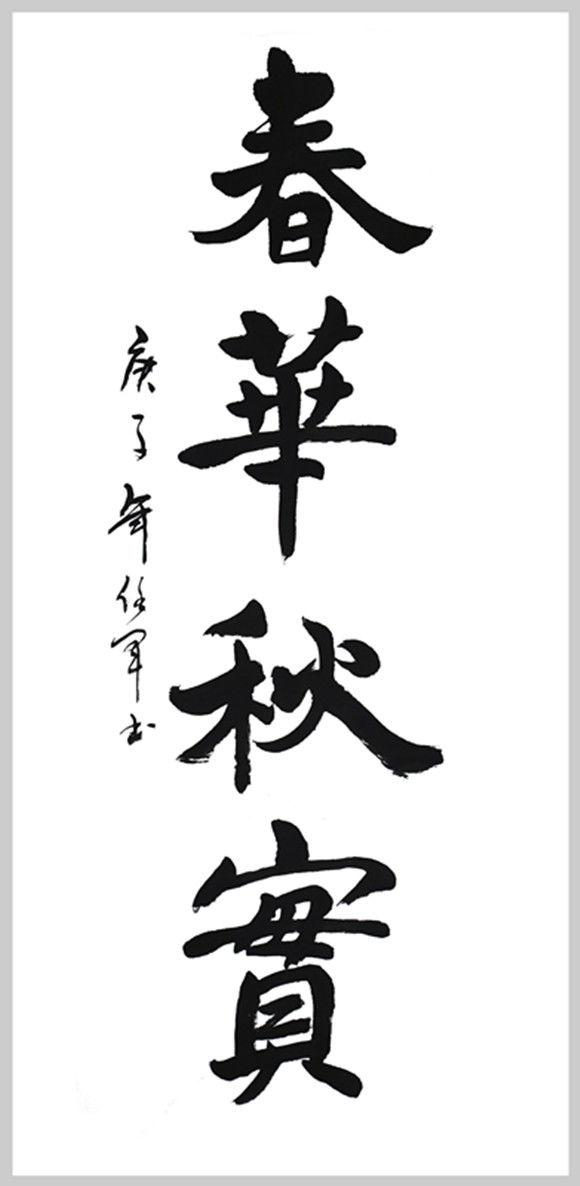 春華秋實
庚子年任軍书